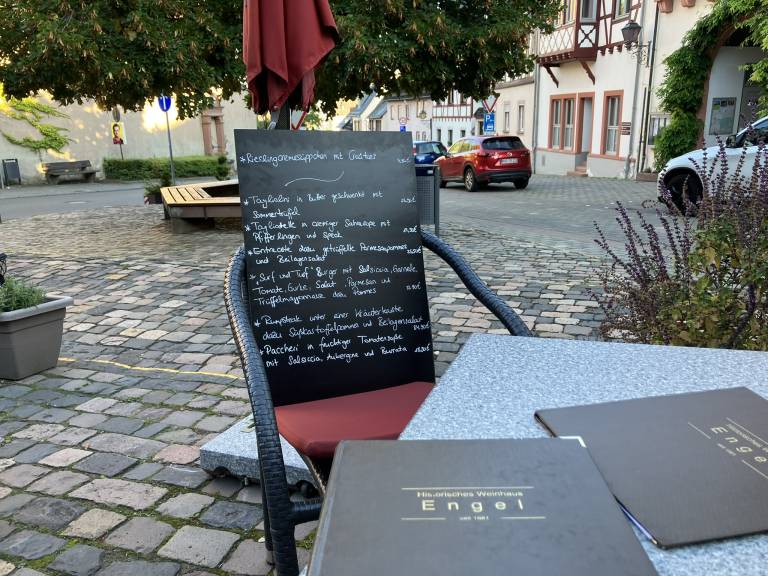 *Rieslingcremesüppchen mit Croûtons
*Tagliolini in Butter geschwenkt mit
Sommertrüffel
*Tagliatelle in cremiger Sahnesoße mit
Pfifferlingen und Speck
*Entrecote dazu getrüffelte Parmesanpommes
und Beilagensalat
*"Surf und Turf" Burger mit Salsiccia, Garnele,
Tomate, Gurke, Salat, Parmesan und
Trüffelmayonnaise dazu Pommes
*Rumpsteak unter einer Kräuterkruste
dazu Süßkartoffelpommes und Beilagensalat
*Paccheri in fruchtiger Tomatensoße
mit Salsiccia, Aubergine und Burrata
Historisches Weinhaus
Engel
seit
Engel